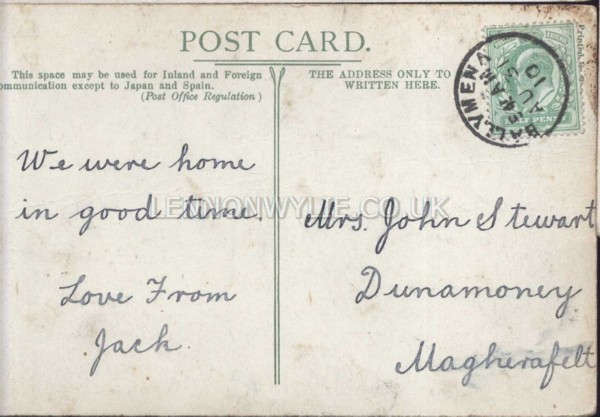 POST CARD.
This space may be used for Inland and Foreign
ommunication except to Japan and Spain.
(Post Office Regulation)
THE ADDRESS ONLY TO
WRITTEN HERE.
BALLYMENA
AU
10
HALFPENNY
We were home
in good time.
Love From
Jack.
LENNONWYLIE.CO.UK
Mrs. John Stewart
Dunamoney
Magherafelt